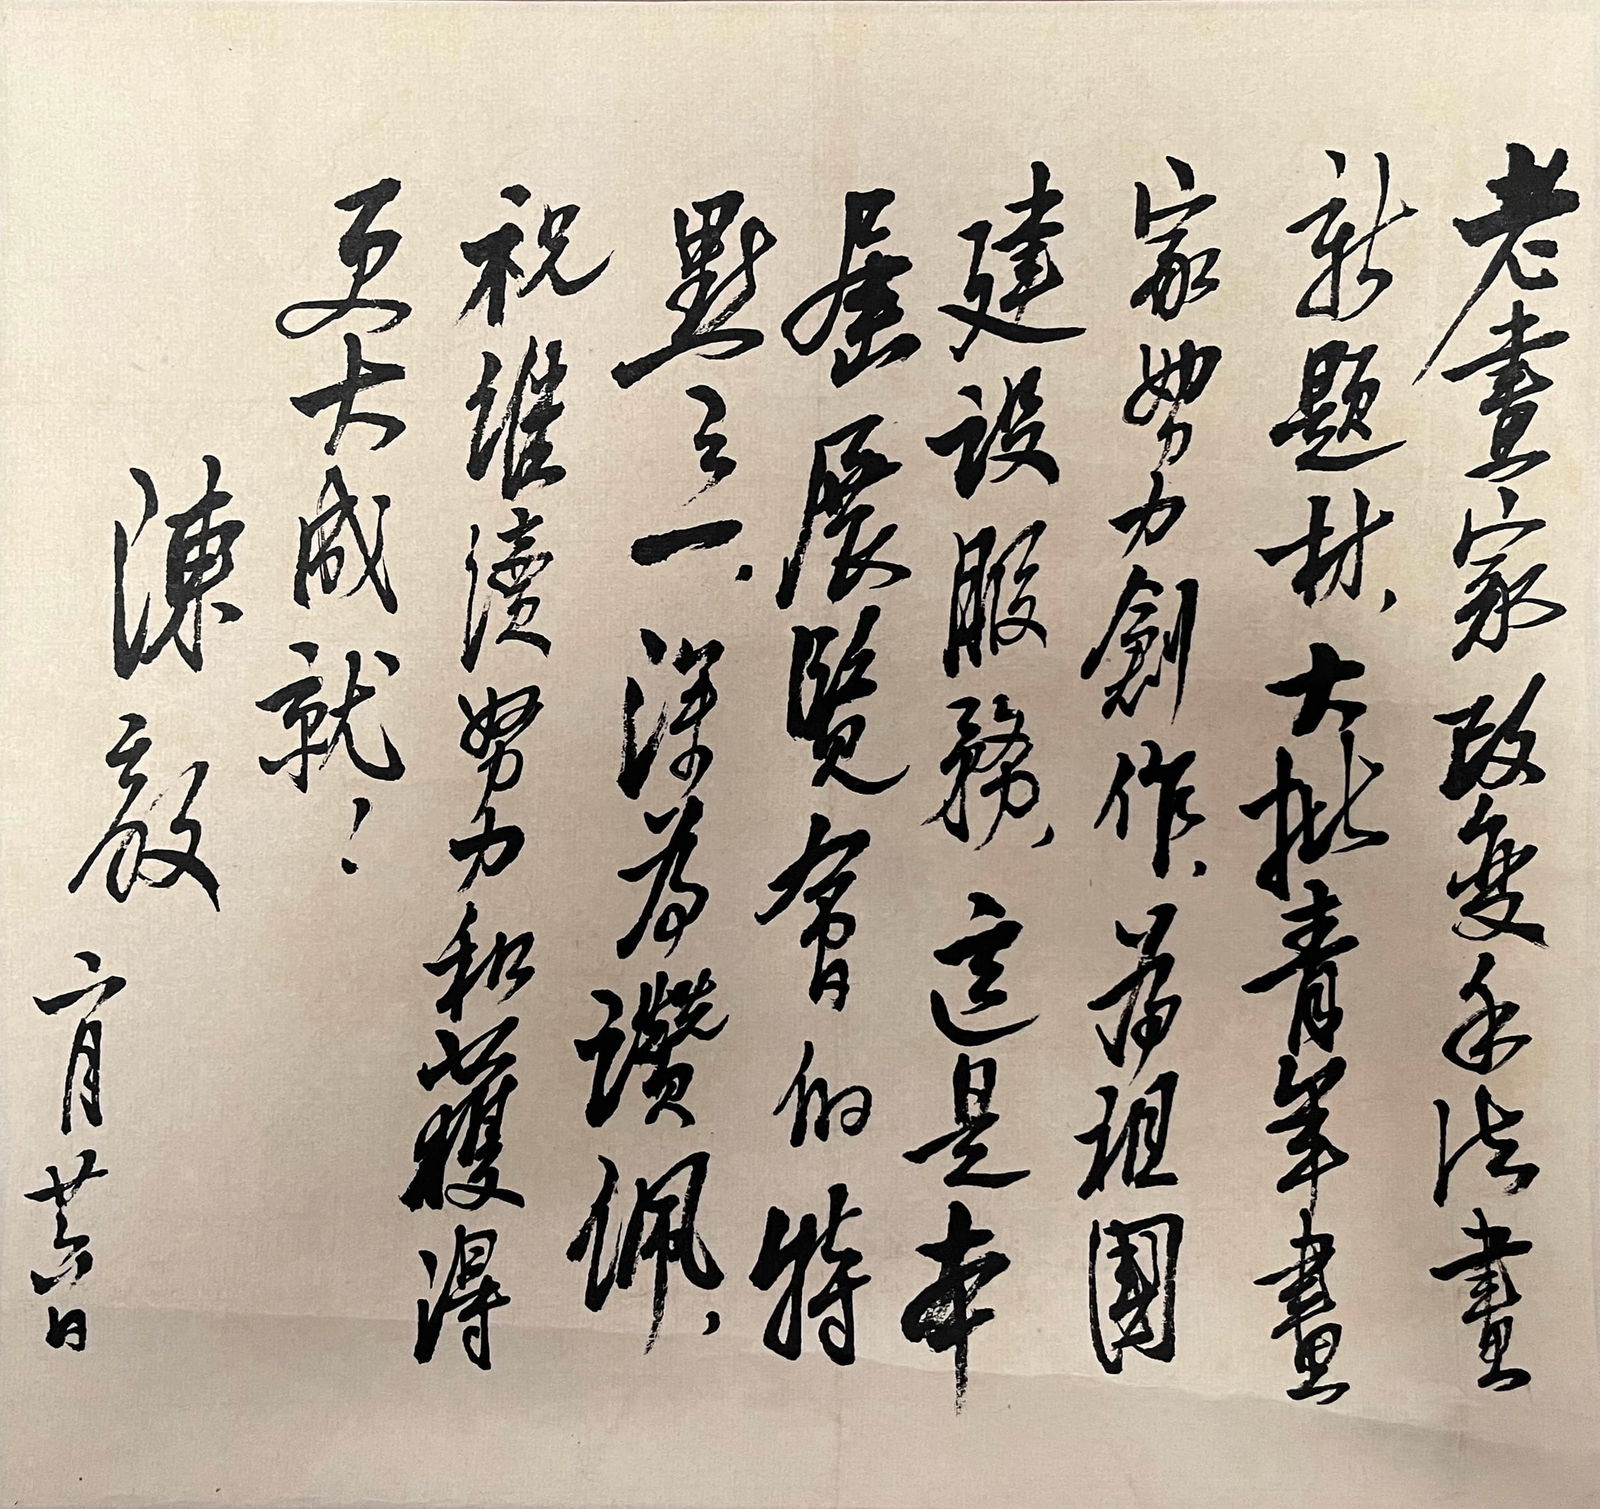 老畫家改變手法畫
新題材，大批青年畫
家努力創作，為祖國
建設服務，這是本
屆展覽會的特
點之一，深為讚佩，
祝繼續努力和獲得
更大成就！
陳毅
二月廿六日